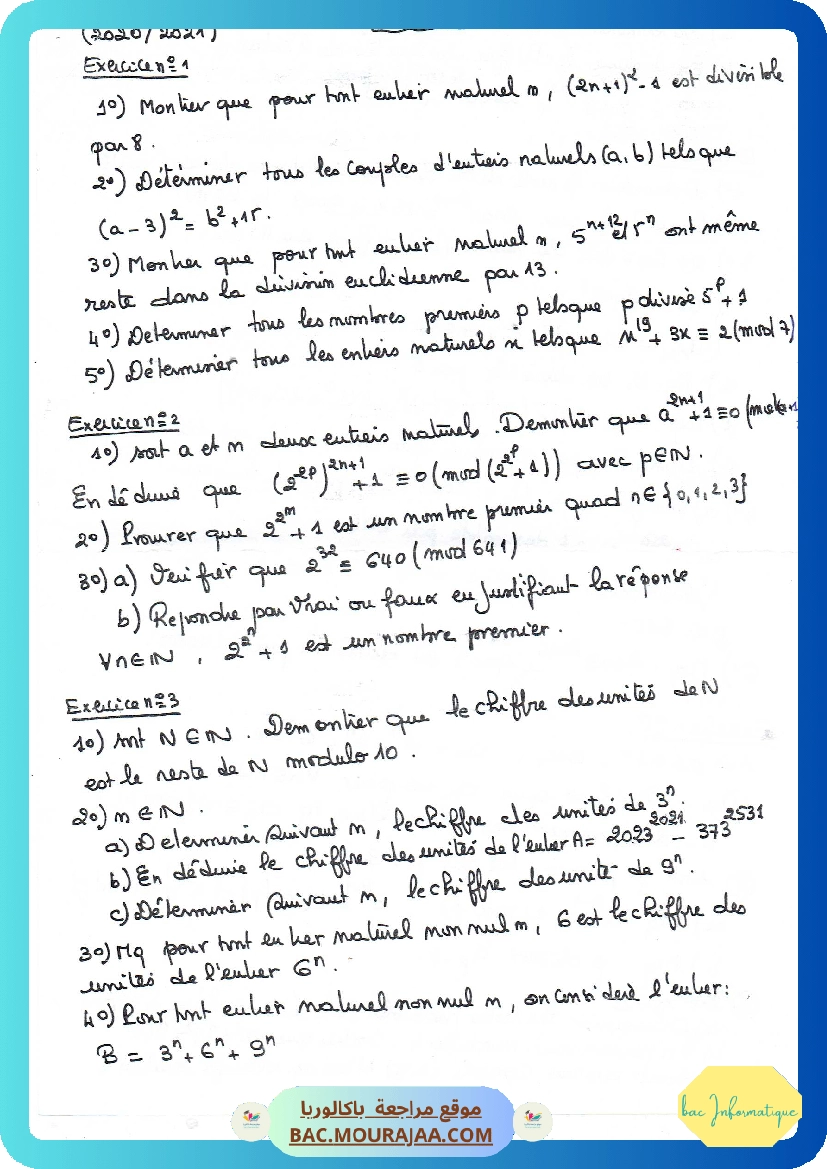 (2020/2021)
Exercice n°=1
1°) Montrer que pour tout entier naturel n, (2n+1)² - 1 est divisible
par 8.
2°) Déterminer tous les Couples d'entiers naturels (a, b) tels que
(a - 3)² = b² + 15.
3°) Montrer que pour tout entier naturel n, 5ⁿ⁺¹² et 5ⁿ ont même
reste dans la division euclidienne par 13.
4°) Determiner tous les nombres premiers p tels que p divise 5ᵖ + 1
5°) Déterminer tous les entiers naturels x tels que x¹⁹ + 3x ≡ 2 (mod 7)
Exercice n°=2
1°) soit a et n deux entiers naturels. Demontrer que a²ⁿ⁺¹ + 1 ≡ 0 (mod a+1
En déduire que (2^2^p)^2n+1 + 1 ≡ 0 (mod (2^2^p + 1)) avec p ∈ ℕ.
2°) Prouver que 2^2^n + 1 est un nombre premier quad n ∈ {0, 1, 2, 3}
3°) a) Verifier que 2³² ≡ 640 (mod 641)
b) Repondre par Vrai ou faux en Justifiant la réponse
∀n ∈ ℕ, 2^2^n + 1 est un nombre premier.
Exercice n°=3
1°) Soit N ∈ ℕ. Demontrer que le chiffre des unités de N
est le reste de N modulo 10.
2°) n ∈ ℕ.
a) Determiner Suivant n, le chiffre des unités de 3ⁿ.
b) En déduire le chiffre des unités de l'entier A = 2023²⁰²¹ - 373²⁵³¹
c) Déterminer Suivant n, le chiffre des unité de 9ⁿ.
3°) Mq pour tout entier naturel non nul n, 6 est le chiffre des
unités de l'entier 6ⁿ.
4°) Pour tout entier naturel non nul n, on considere l'entier:
B = 3ⁿ + 6ⁿ + 9ⁿ
bac Informatique
موقع مراجعة باكالوريا
BAC.MOURAJAA.COM